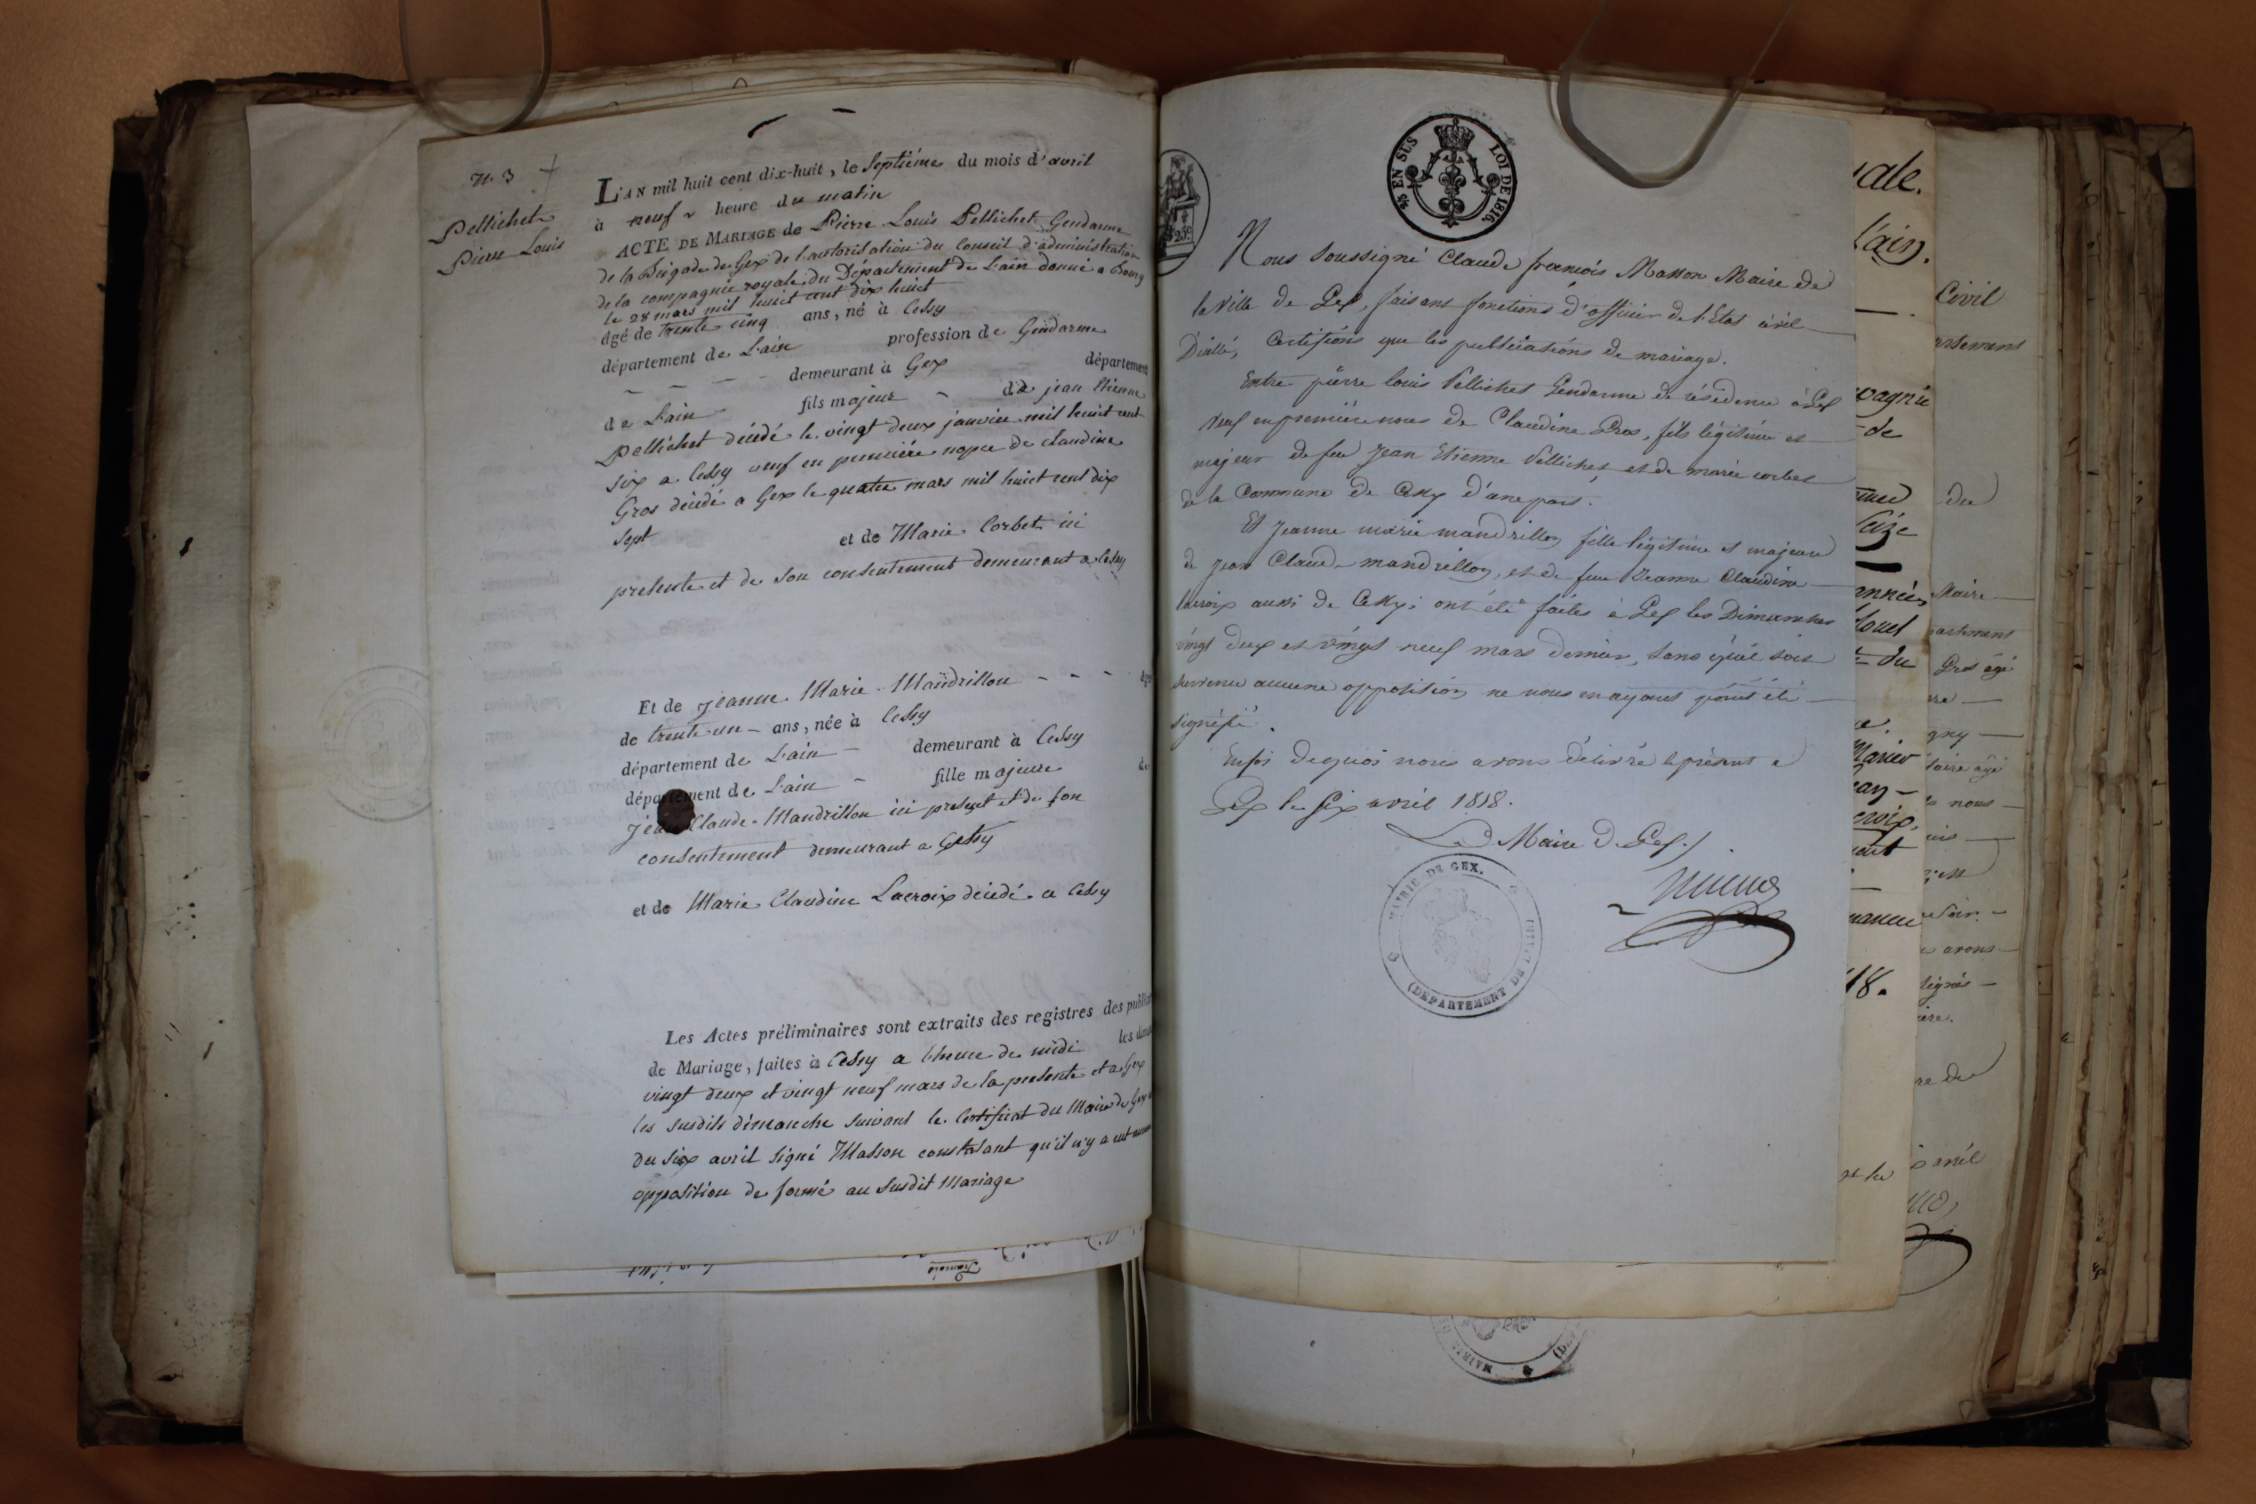 N. 3
Pellichet
Pierre Louis
L'AN mil huit cent dix-huit, le Septiéme du mois d'avril
à neuf heure du matin
ACTE DE MARIAGE de Pierre Louis Pellichet Gendarme
de la Brigade de Gex de l'autorisation du Conseil d'administration
de la compagnie royale du Département de l'ain donné a Bourg
le 28 mars mil huit cent dix huit
âgé de trente cinq ans, né à Cessy
département de L'ain profession de Gendarme
demeurant à Gex département
de L'ain fils majeur de jean Etienne
Pellichet décédé le vingt deux janvier mil huit cent
six a Cessy veuf en premiére nopce de claudine
Gros décédé a Gex le quatre mars mil huit cent dix
sept et de Marie Corbet ici
presente et de son consentement demeurant a Cessy
Et de jeanne Marie Mandrillon
de trente un ans, née à Cessy
département de L'ain demeurant à Cessy
département de L'ain fille majeure de
jean Claude Mandrillon ici present et de son
consentement demeurant a Cessy
et de Marie Claudine Lacroix décédé a Cessy
Les Actes préliminaires sont extraits des registres des
de Mariage, faites à Cessy a l'heure de midi les
vingt deux et vingt neuf mars de la presente et a Gex
les susdits dimanche suivant le Certificat du Maire de Gex
du six avril signé Masson constatant qu'il n'y a eut
opposition de formé au susdit Mariage
EN SUS LOI DE 1816.
25c
Nous Soussigné Claude françois Masson Maire de
la Ville de Gex, faisant fonctions d'officier de l'Etat civil
Dicelle, Certifions que les publications de mariage.
Entre pierre louis Pellichet Gendarme de résidence à Gex
Veuf en première noces de Claudine Gros, fils légitime et
majeur de feu Jean Etienne Pellichet, et de marie corbet
de la Commune de Cessy d'une part.
Et Jeanne marie mandrillon fille légitime et majeure
de Jean Claude mandrillon, et de feue Jeanne Claudine
lacroix aussi de Cessy; ont été faites à Gex les Dimanches
vingt deux et vingt neuf mars dernier, sans qu'il soit
survenu aucune opposition, ne nous en ayant point été
signifié.
Enfoi dequoi nous avons délivré le présent a
Gex le Six avril 1818.
Le Maire de Gex.
MAIRIE DE GEX.
(DEPARTEMENT DE L'AIN)
ale.
l'ain.
Civil
de
du
Maire
Gros âgé
avons
18.
avril
François